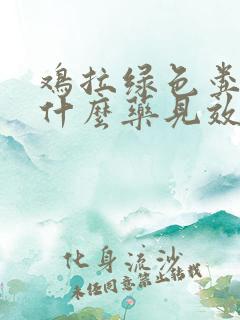 鸡拉绿色粪
什麽药见效
化身流沙
未经同意禁止转载